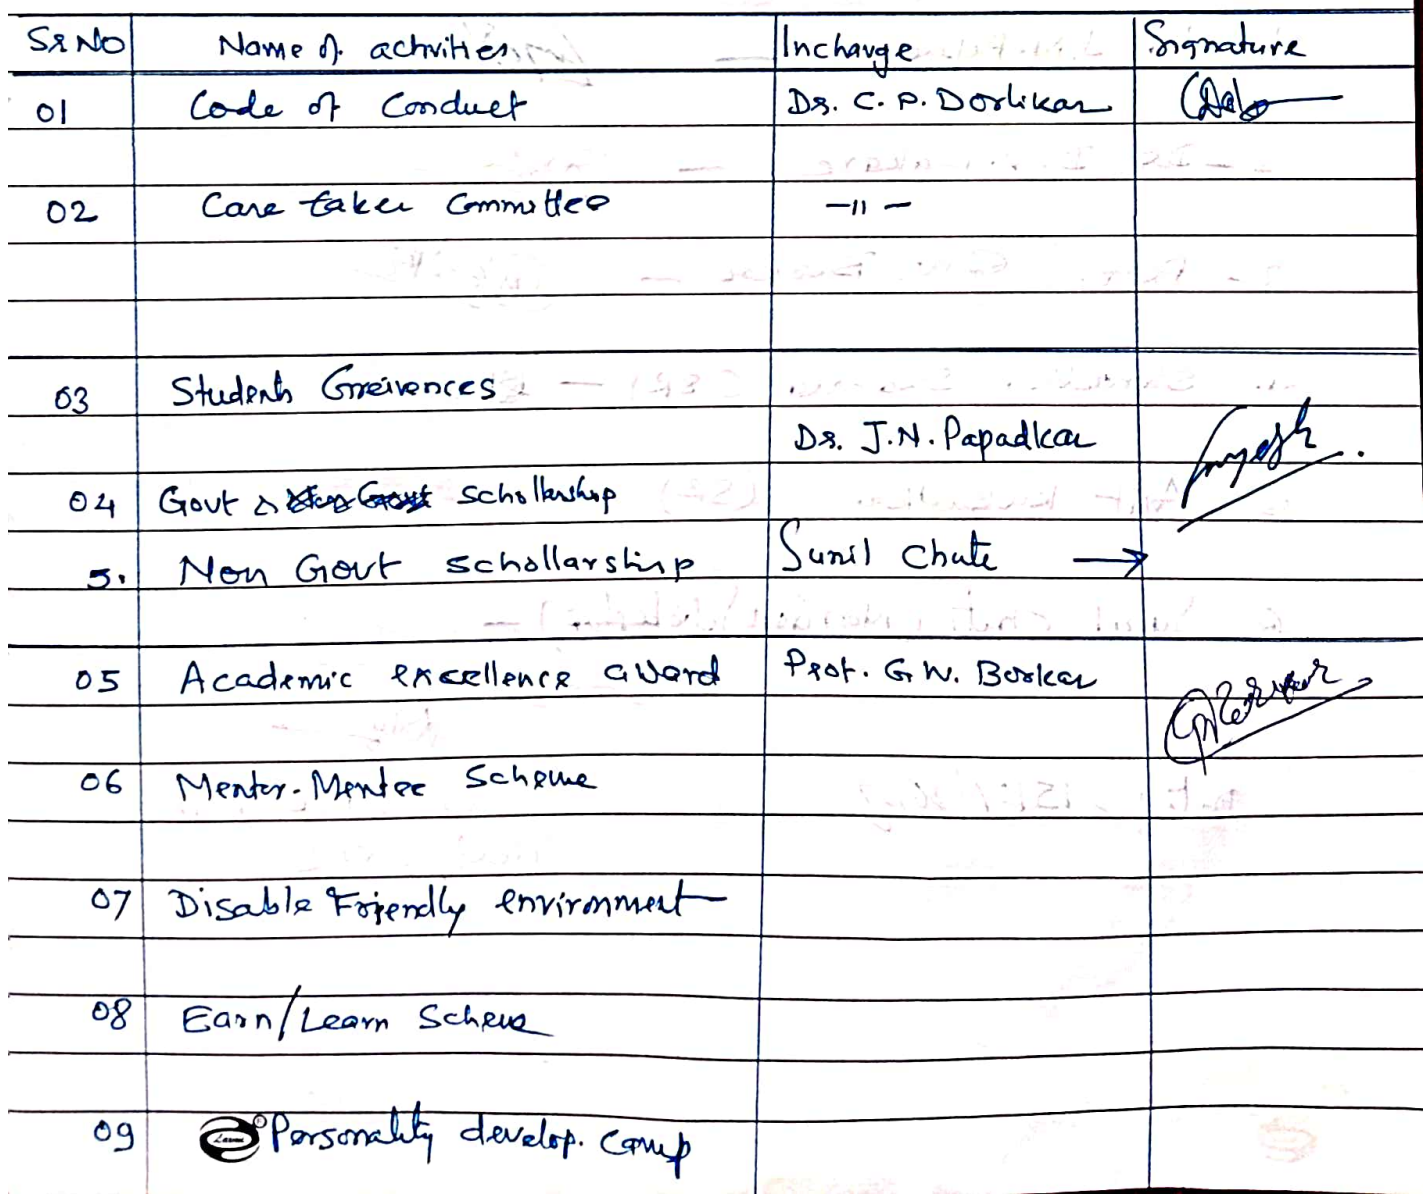 Sr No Name of activities Incharge Signature
01 Code of Conduct Dr. C. P. Dorlikar
02 Care taker Committee -11-
03 Students Greivences
Dr. J.N. Papadkar
04 Govt & Schollarship
5. Non Govt schollarship Sunil Chute →
05 Academic excellence award Prof. G W. Borkar
06 Mentor-Mentee Scheme
07 Disable Friendly environment
08 Earn/Learn Scheme
09 Personality develop. Camp